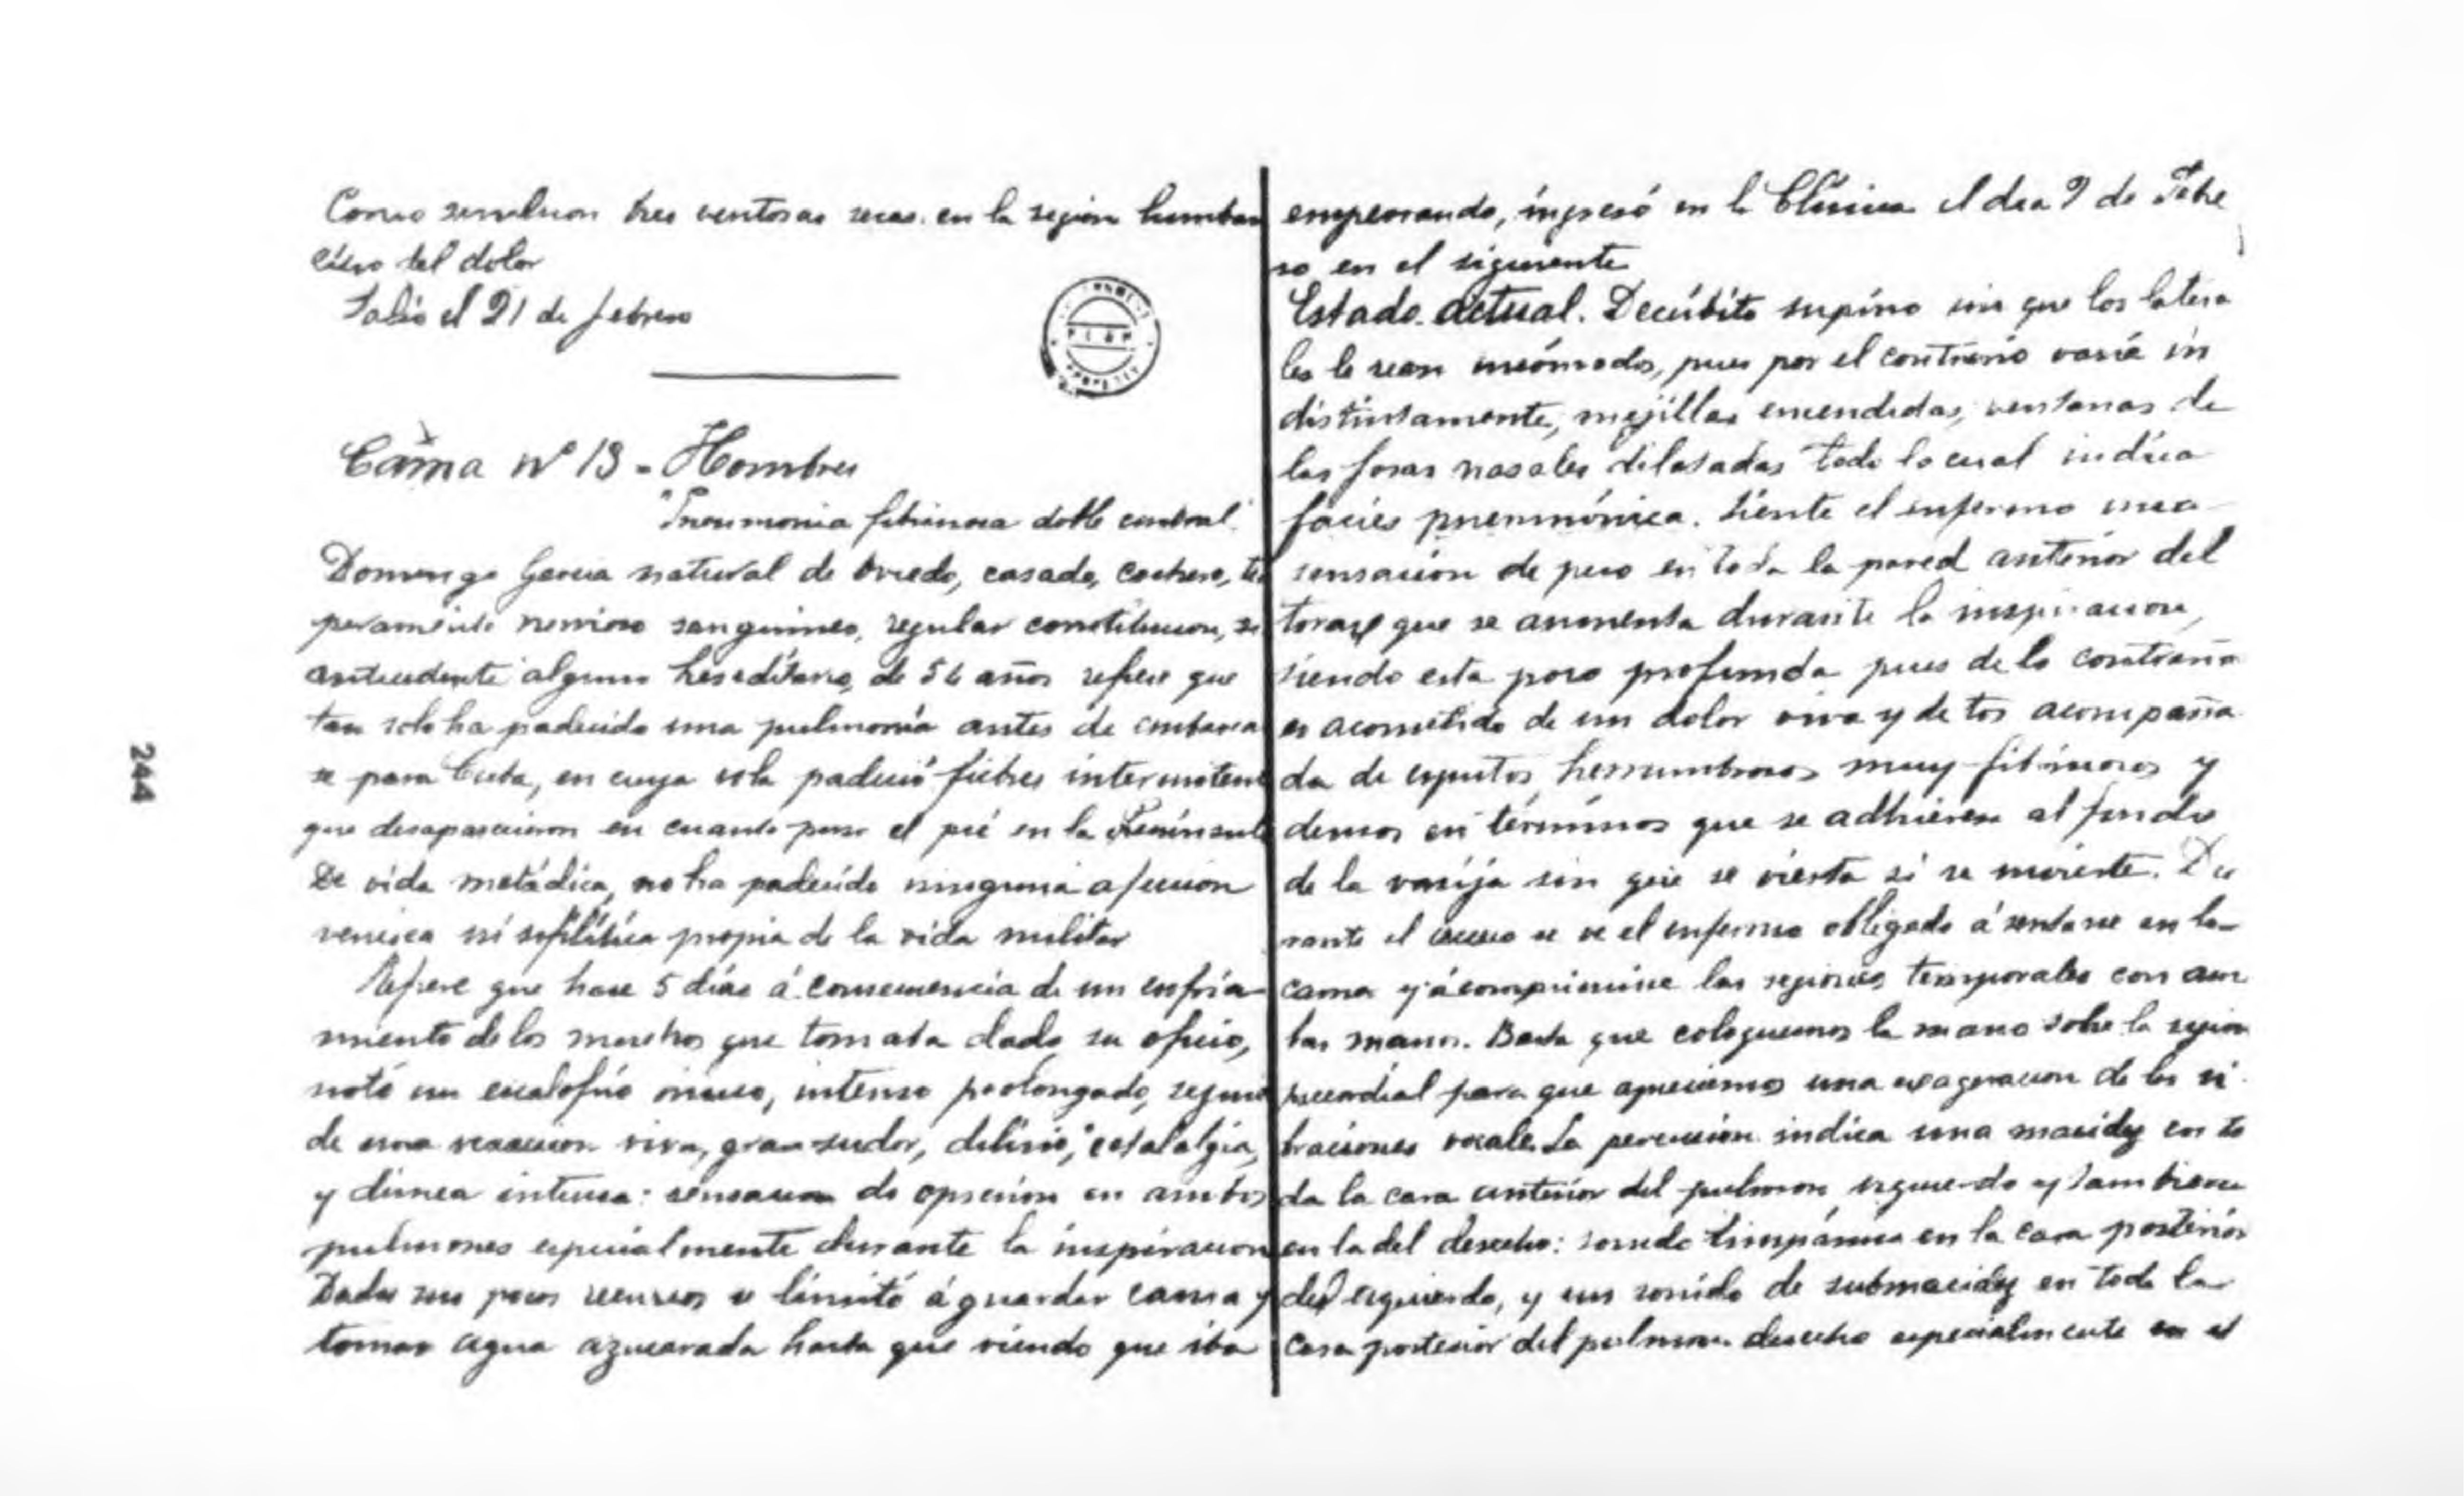 Como resultaron tres ventosas secas en la region lumbar
del dolor
Salió el 21 de febrero
Cama nº 13 - Hombres
"Pneumonia fibrinosa doble central"
Domingo Garcia natural de Oviedo, casado, cochero, te
peramento nervioso sanguineo, regular constitucion, si
antecedente alguno hereditario, de 56 años refiere que
tan solo ha padecido una pulmonía antes de embarca
se para Cuba, en cuya isla padeció fiebres intermitent
que desaparecieron en cuanto puso el pié en la Penínsul
De vida metódica, no ha padecido ninguna afeccion
venérea ni sifilítica propia de la vida militar
Refiere que hace 5 días á consecuencia de un enfria
miento de los muchos que tomaba dado su oficio,
notó un escalofrío único, intenso prolongado, seguido
de una reaccion viva, gran sudor, delirio, cefalalgia,
y disnea intensa: sensacion de opresión en ambos
pulmones especialmente durante la inspiracion
Dados sus pocos recursos se limitó á guardar cama y
tomar agua azucarada hasta que viendo que iba
empeorando, ingresó en la Clínica el dia 9 de Febre
ro en el siguiente
Estado actual. Decúbito supino sin que los latera
les le sean incómodos, pues por el contrario varía in
distintamente; mejillas encendidas, ventanas de
las fosas nasales dilatadas todo lo cual indica
facies pneumónica. Siente el enfermo una
sensación de peso en toda la pared anterior del
torax que se aumenta durante la inspiracion,
siendo esta poco profunda pues de lo contrario
es acometido de un dolor vivo y de tos acompaña
da de esputos herrumbrosos muy fibrinosos y
densos en términos que se adhieren al fondo
de la vasija sin que se vierta si se invierte. Du
rante el acceso se ve el enfermo obligado á sentarse en la
cama y á comprimirse las regiones temporales con am
bas manos. Basta que coloquemos la mano sobre la region
precordial para que apreciemos una exageracion de las vi
braciones vocales. La percusión indica una macidez en to
da la cara anterior del pulmon izquierdo y tambien
en la del derecho: sonido timpánico en la cara posterior
del izquierdo, y un sonido de submacidez en toda la
cara posterior del pulmon derecho especialmente en el
244